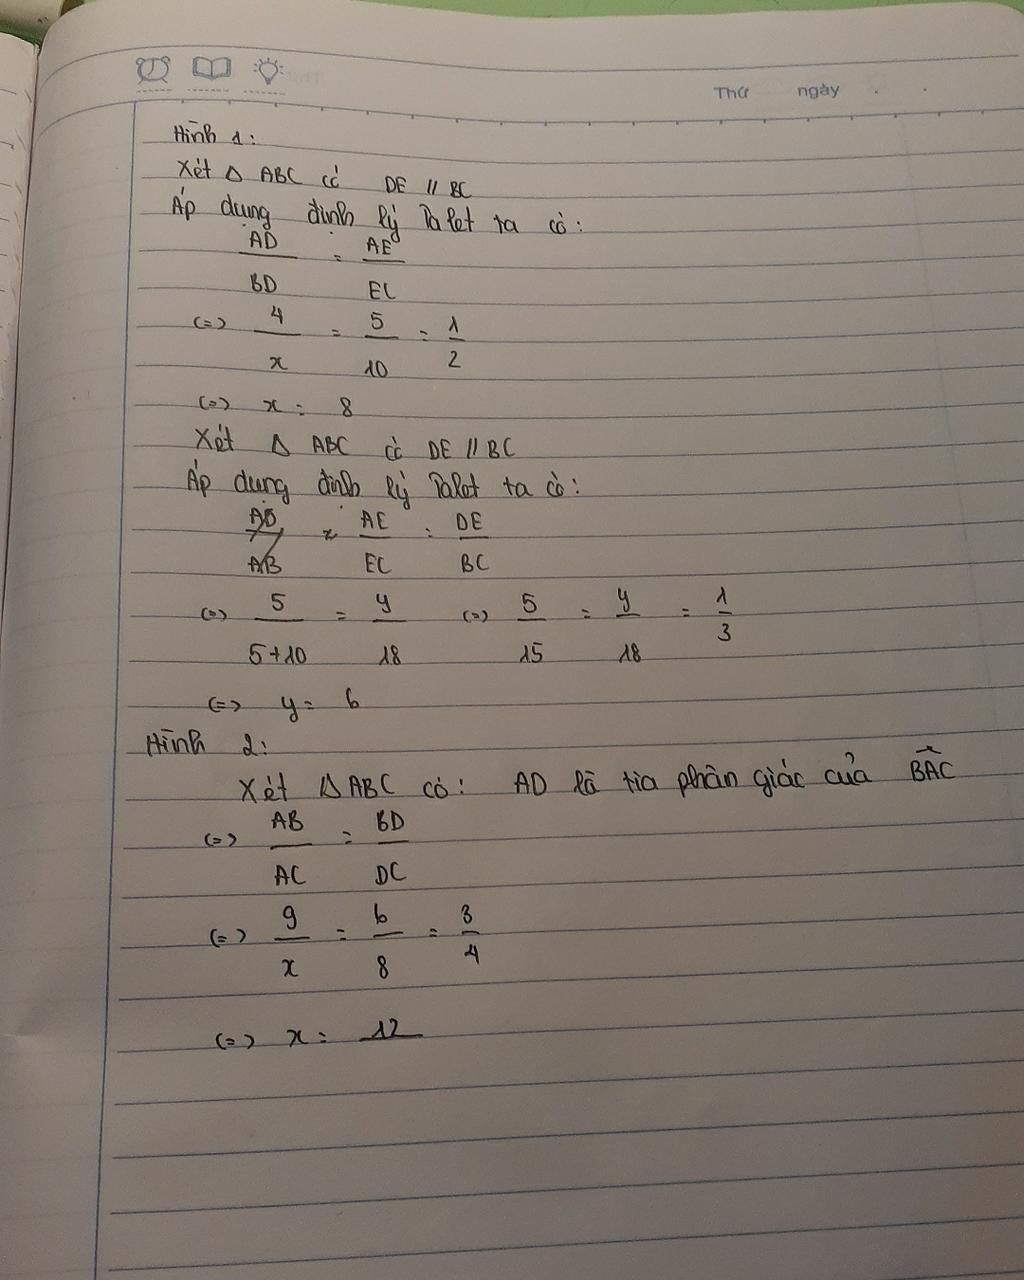 Thứ ngày
Hình 1:
Xét Δ ABC có DE // BC
Áp dụng định lý Talet ta có:
AD/BD = AE/EC
(=) 4/x = 5/10 = 1/2
(=) x = 8
Xét Δ ABC có DE // BC
Áp dụng định lý Talet ta có:
AE/EC = DE/BC
(=) 5/5+10 = y/18 (=) 5/15 = y/18 = 1/3
(=) y = 6
Hình 2:
Xét Δ ABC có: AD là tia phân giác của BAC
(=) AB/AC = BD/DC
(=) 9/x = 6/8 = 3/4
(=) x = 12